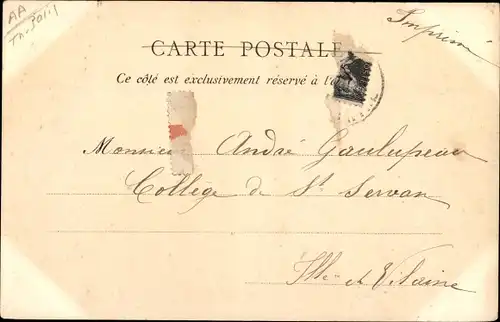 AA
Imprimé
CARTE POSTALE
Ce côté est exclusivement réservé à l'a
Monsieur André Gaulupeau
Collège de St Servan
Ille et Vilaine